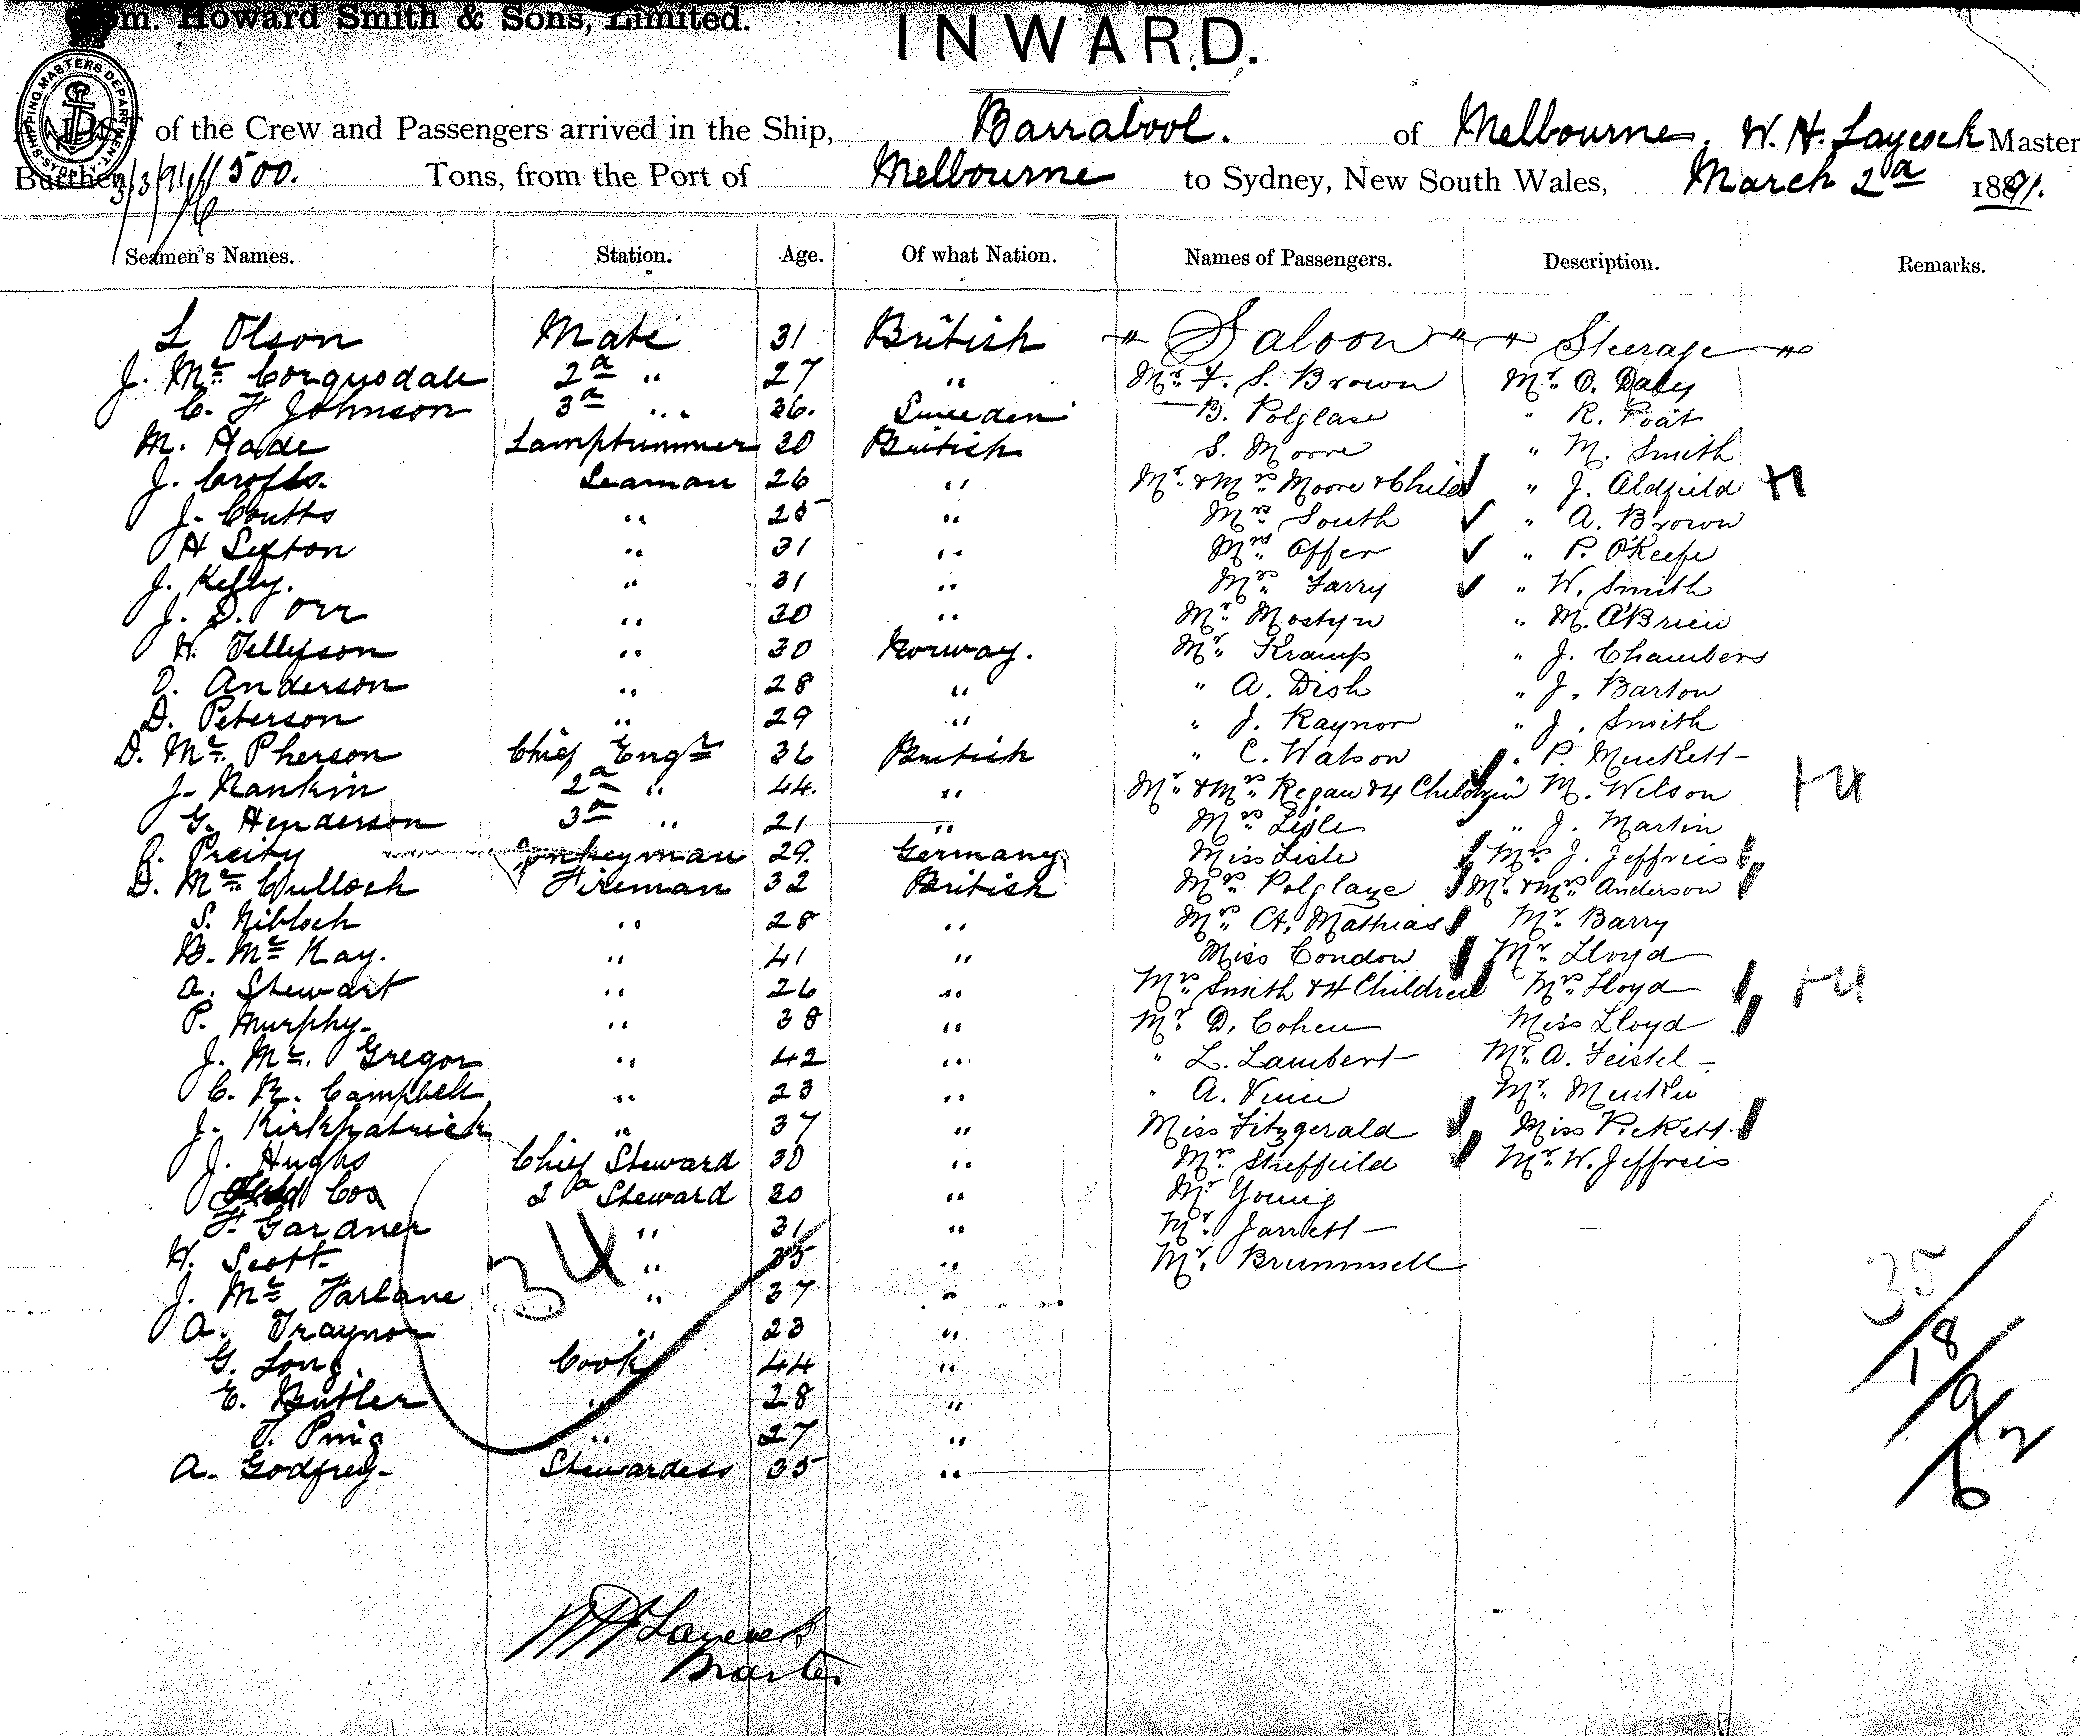 Wm. Howard Smith & Sons, Limited.
INWARD.
SHIPPING MASTERS DEPARTMENT
of the Crew and Passengers arrived in the Ship, Barrabool. of Melbourne, W. H. Laycock Master
Burthen 500. Tons, from the Port of Melbourne to Sydney, New South Wales, March 2d 1891.
3/3/91
Seamen's Names. Station. Age. Of what Nation. Names of Passengers. Description. Remarks.
L Olson Mate 31 British " Saloon " " Steerage "
J. Mc Corquodale 2d " 27 " Mr. F. S. Brown Mr. O. Daley
C. F Johnson 3d " 36. Sweeden B. Polglase " R. Poat
M. Hade Lamptrimmer 30 British S. Moore " M. Smith
J. Crofts. Seaman 26 " Mr. & Mrs Moore & Child " J. Oldfield
J. Coutts " 25 " Mrs South " A. Brown
H Sexton " 31 " Mrs Offer " P. O'Keefe
J. Kelly. " 31 " Mrs Farry " W. Smith
J. D. Orr " 30 " Mr. Mostyn " M. O'Brien
H. Tellyson " 30 Norway. Mr. Kramp " J. Chambers
O. Anderson " 28 " " A. Dish " J. Barton
D. Peterson " 29 " " J. Raynor " J. Smith
D. Mc Pherson Chief Engr 36 British " C. Watson " P. Muckett
J. Rankin 2d " 44. " Mr. & Mrs Regan & 4 Children M. Wilson
G. Henderson 3d " 21 " Mrs Lisle " J. Martin
Preity Donkeyman 29. Germany Miss Lisle Mrs J. Jeffreis
D. Mc Culloch Fireman 32 British Mrs Polglaze Mr. & Mrs Anderson
S. Nibloch " 28 " Mrs A. Mathias Mr. Barry
B. Mc Kay. " 41 " Miss Condon Mr. Lloyd
A. Stewart " 26 " Mrs Smith & 4 Children Mrs Lloyd
P. Murphy. " 38 " Mr. D. Cohen Miss Lloyd
J. Mc. Gregor " 42 " " L. Lambert Mr. A. Feistel
C. R. Campbell " 23 " " A. Mr.
J. Kirkpatrick " 37 " Miss Fitzgerald Miss Pickett
J. Hughs Chief Steward 30 " Mrs Sheffeild Mr. W. Jeffreis
Cox 2d Steward 20 " Mr Young
F. Gardner " 31 " Mr. Jarrett
H. Scott " 35 " Mr. Brummell
J. Mc Farlane " 37 "
A. Traynor " 23 "
G. Long. Cook 44 "
E. Butler " 28 "
T. Ping " 27 "
A. Godfrey. Stewardess 35 "
34
35
18
9
2
6
+1
+4
+4
W H Laycock
Master